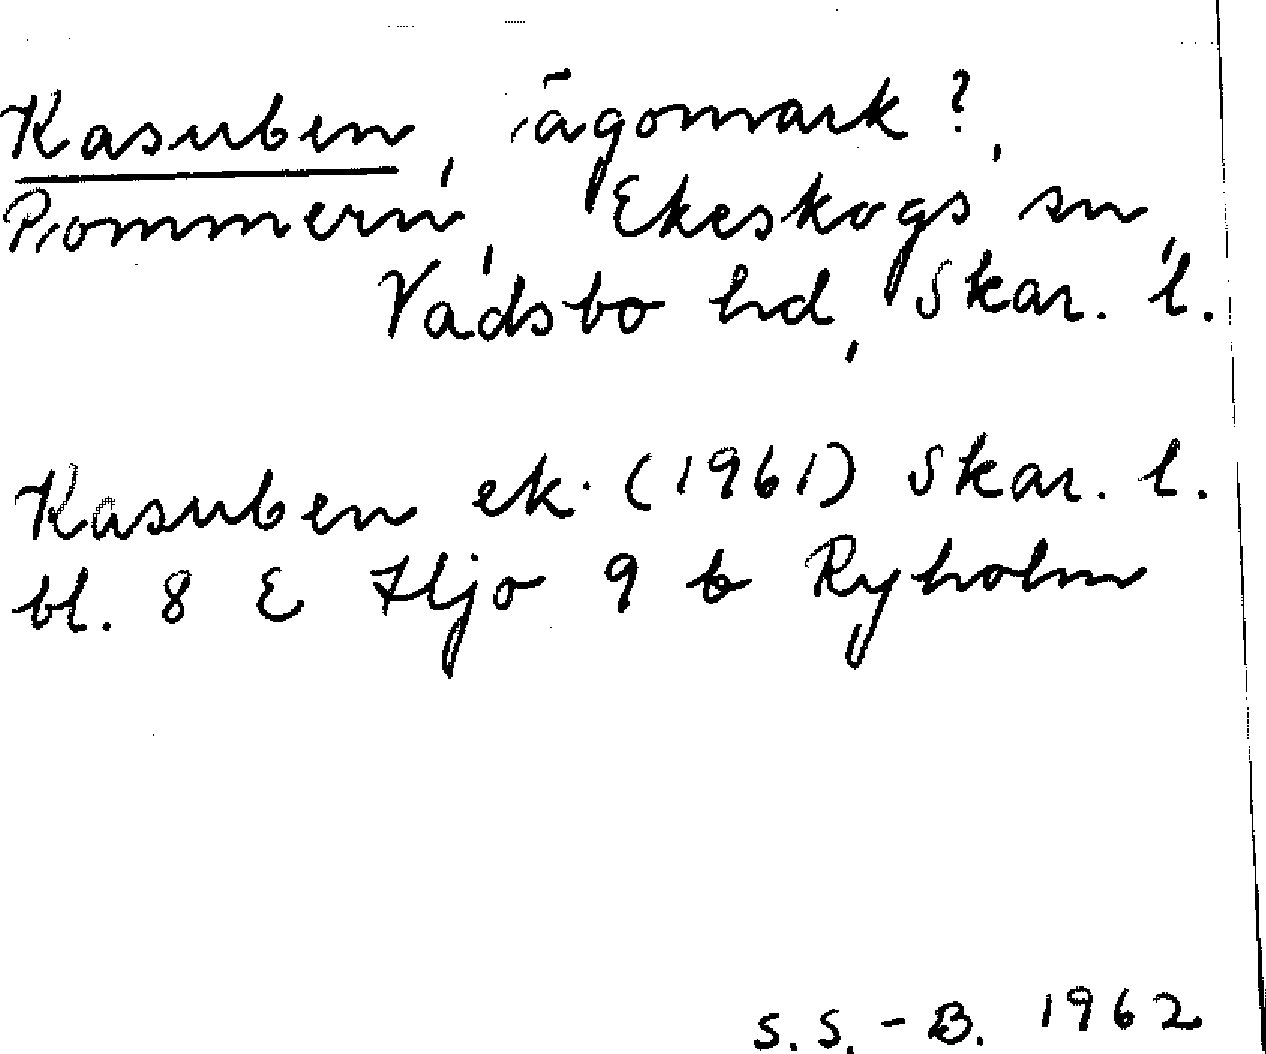 Kasuben, ägomark?,
Pommern, Ekeskogs sn,
Vadsbo hd, Skar. l.
Kasuben ek. (1961) Skar. l.
bl. 8 E Hjo 9 b Ryholm
S. S. - B. 1962